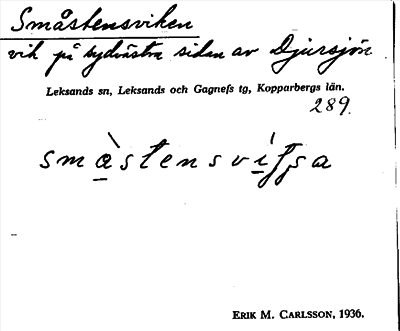 Småstensviken
vik på sydvästra sidan av Djursjön
Leksands sn, Leksands och Gagnefs tg, Kopparbergs län.
289.
ERIK M. CARLSSON, 1936.